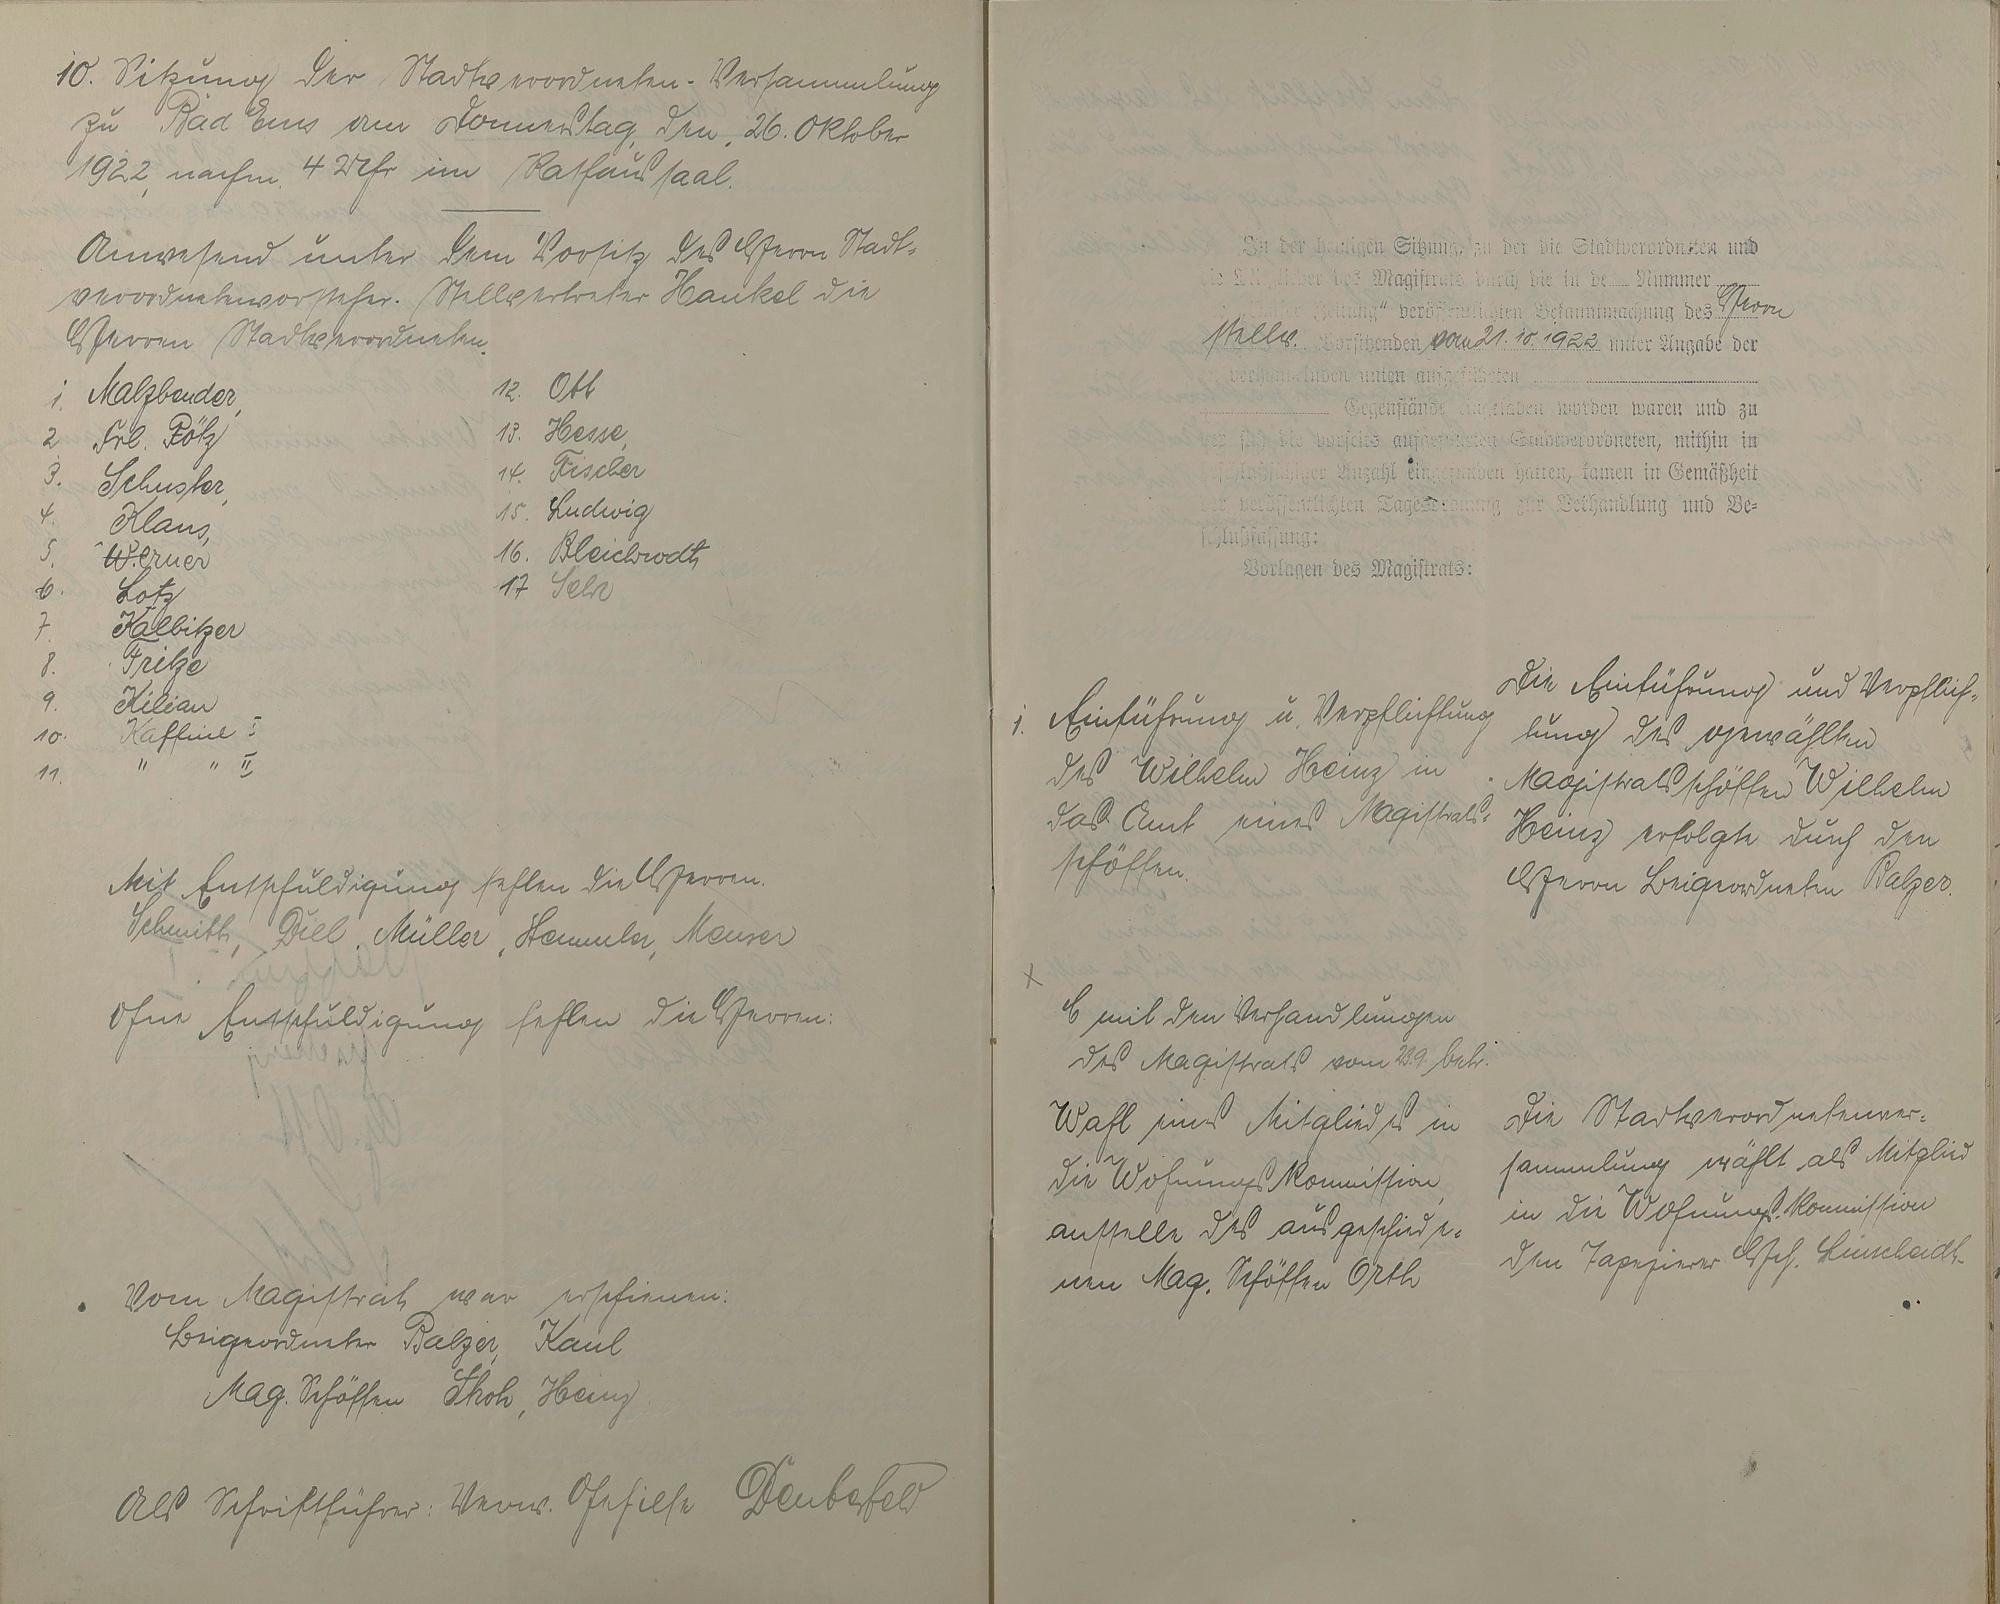 10. Sitzung der Stadtverordneten-Versammlung
zu Bad Ems am Donnerstag, den 26. Oktober
1922, nachm. 4 Uhr im Rathaussaal.
Anwesend unter dem Vorsitz des Herrn Stadt-
verordnetenvorsteher-Stellvertreter Hankel die
Herren Stadtverordneten.
1. Malzbender,
2 Frl. Pötz
3. Schuster,
4. Klaus,
5. Werner
6. Lotz
7. Kalbitzer
8. Fritze
9. Kilian
10. Kaffine I
11. " " II
12. Ott
13. Hesse,
14. Fischer
15. Ludwig
16. Bleichrodt,
17 Selz
Mit Entschuldigung fehlen die Herren.
Schmitt, Diel, Müller, Hemmler, Menser
Ohne Entschuldigung fehlen die Herren:
Vom Magistrat war erschienen:
Beigeordneter Balzer, Kaul
Mag. Schöffen Heinz
Als Schriftführer: Verw. Gehilfe Denbesfeld
In der heutigen Sitzung, zu der die Stadtverordneten und
die Mitglieder des Magistrats durch die in de Nummer
Zeitung" veröffentlichten Bekanntmachung des Herrn
stellv. Vorsitzenden vom 21. 10. 1922 unter Angabe der
zu verhandelnden unten aufgeführten
Gegenstände eingeladen worden waren und zu
der sich die vorseits aufgeführten Stadtverordneten, mithin in
beschlußfähiger Anzahl eingefunden hatten, kamen in Gemäßheit
der veröffentlichten Tagesordnung zur Verhandlung und Be-
schlußfassung:
Vorlagen des Magistrats:
1. Einführung u. Verpflichtung
des Wilhelm Heinz in
das Amt eines Magistrats-
schöffen.
Die Einführung und Verpflich-
tung des gewählten
Magistratsschöffen Wilhelm
Heinz erfolgte durch den
Herrn Beigeordneten Balzer.
x
C mit den Verhandlungen
des Magistrats vom 23.9. betr.
Wahl eines Mitgliedes in
die Wohnungskommission,
anstelle des ausgeschiede-
nen Mag. Schöffen Orth
Die Stadtverordnetenver-
sammlung wählt als Mitglied
in die Wohnungs-Kommission
den Tapezierer Hch. Linscheidt.